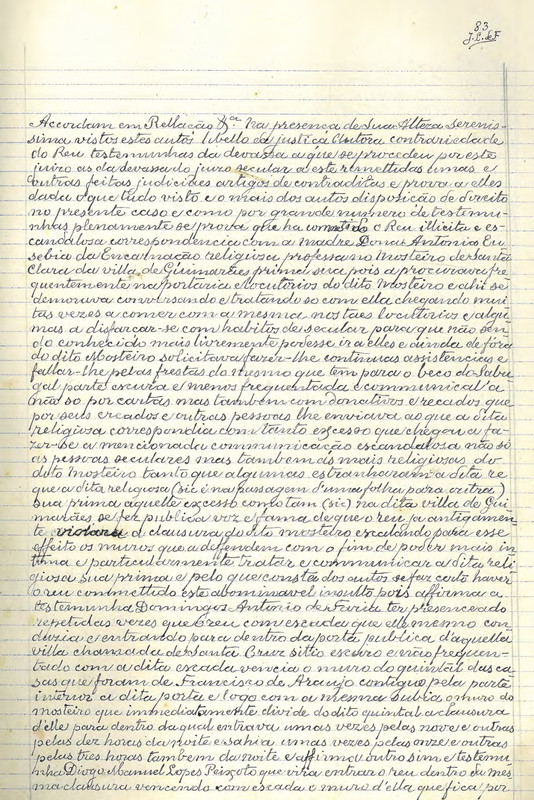 83
J. L. de F.
Accordam em Rellação &ca. Na presença de Sua Alteza Serenis-
sima vistos estes autos libello da justiça Autora contrariedade
do Reu testemunhas da devassa a que se procedeu por este
juizo as da devassa do juizo secular a este remettidas umas e
outras feitas judiciaes artigos de contraditas e prova a elles
dada o que tudo visto e o mais dos autos disposição de direito
no presente caso e como por grande numero de testemu-
nhas plenamente se prova que ha o Reu illicita e es-
candalosa correspondencia com a Madre Dona Antonia Eu-
sebia da Encarnação religiosa professa no Mosteiro de Santa
Clara da villa de Guimarães prima sua pois a procurava fre-
quentemente na portaria e locutorios do dito Mosteiro e ahi se
demorava conversando e tratando so com ella chegando mui-
tas vezes a comer com a mesma nos taes locutorios e algu-
mas a disfarçar-se com habitos de secular para que não sen-
do conhecido mais livremente podesse ir a elles e ainda de fóra
do dito Mosteiro solicitava fazer-lhe continuas assistencias e
fallar-lhe pelas frestas do mesmo que têm para o beco do Sabu-
gal parte escura e menos frequentada e communical-a
não so por cartas mas tambem com donativos e recados que
por seus creados e outras pessoas lhe enviava ao que a dita
religiosa correspondia com tanto excesso que chegou a fa-
zer-se a mencionada communicação escandalosa não só
as pessoas seculares mas tambem ás mais religiosas do
dito Mosteiro tanto que algumas estranharam a dita re
que a dita religiosa (sic é na passagem d'uma folha para outra)
sua prima aquelle excesso como tam (sic) na dita villa de Gui-
marães se fez publica voz e fama de que o reu ja antigamen-
te violara a clausura do dito mosteiro escalando para esse
effeito os muros que a defendem com o fim de poder mais in-
tima e particularmente tratar e communicar a dita reli-
giosa sua prima e pelo que consta dos autos se faz certo haver
o reu commettido este abominavel insulto pois affirma a
testemunha Domingos Antonio de Faria ter presenceado
repetidas vezes que o reu com escada que elle mesmo con-
dusia e entrando para dentro da porta publica d'aquella
villa chamada de Santa Cruz sitio escuro e não frequen-
tado com a dita escada vencia o muro do quintal das ca-
sas que foram de Francisco de Araujo contigue pela parte
interior a dita porta e logo com a mesma subia o muro do
mosteiro que immediatamente divide do dito quintal a clausura
d'elle para dentro da qual entrava umas vezes pelas nove e outras
pelas dez horas da noite e sahia umas vezes pelas onze e outras
pelas tres horas tambem da noite e affirma outro sim e testemu-
nha Diogo Manuel Lopes Peixoto que vira entrar o reu dentro da mes-
ma clausura vencendo com escada o muro d'ella que fica por